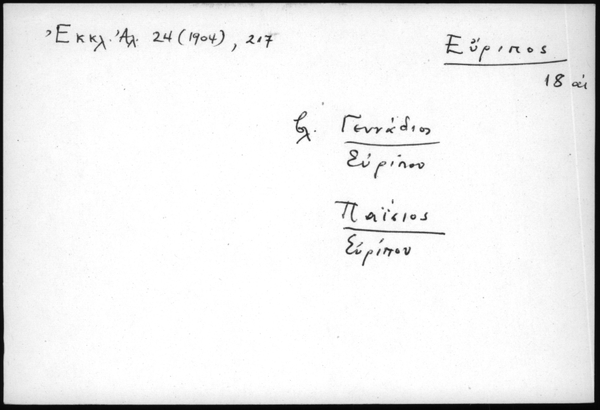 Ἐκκλ. Ἀλ. 24 (1904), 207
Εὔριπος
18 αἰ
βλ. Γεννάδιος
Εὐρίπου
Παΐσιος
Εὐρίπου